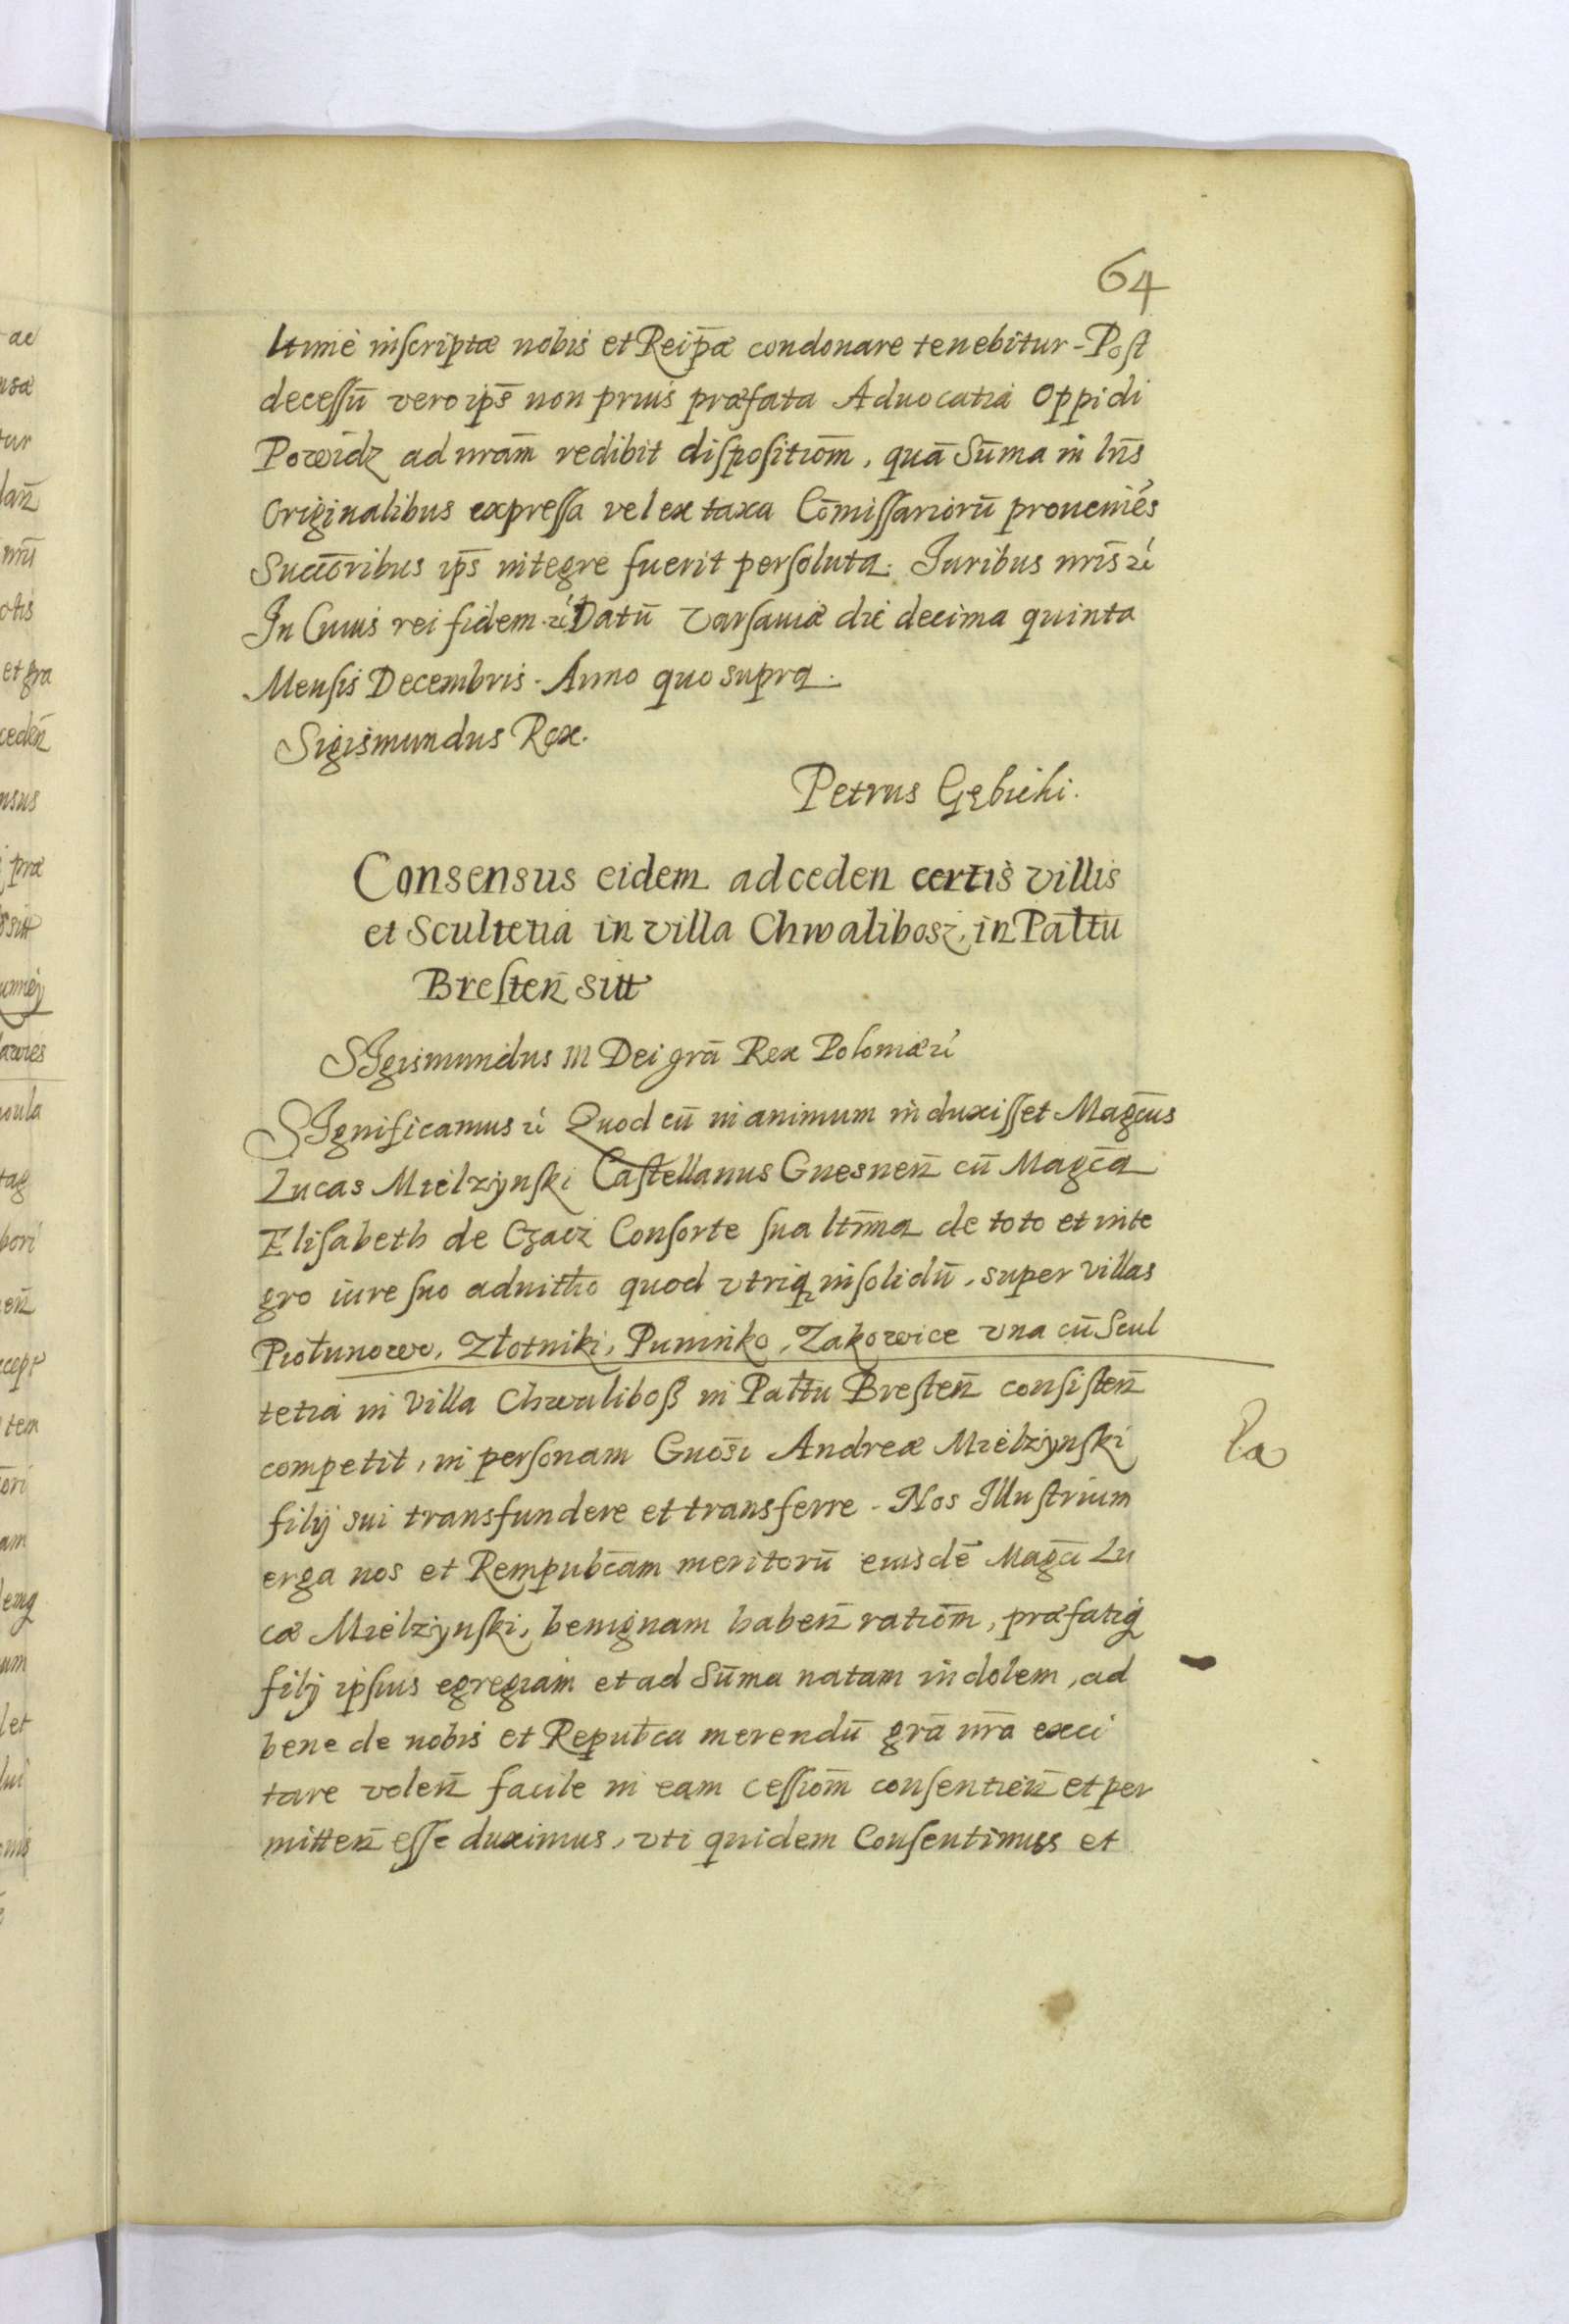 64
ltime inscriptæ nobis et Reip̄æ condonare tenebitur - Post
decessū vero ip̄s non prius præfata Aduocatia Oppidi
Powidz ad nr̄am redibit dispositiōm, quā Sūma in lr̄is
Originalibus expressa vel ex taxa Cōmissariorū proueniēs
Succōribus ip̄s integre fuerit persoluta. Juribus nr̄is ꝛc̄
In Cuius rei fidem ꝛc̄ Datū Varsauiæ die decima quinta
Mensis Decembris. Anno quo supra.
Sigismundus Rex.
Petrus Gębicki.
Consensus eidem ad ceden certis villis
et Scultetia in villa Chwalibosz, in Palt̄u
Bresten̄ sitt
SIgismundus III Dei gr̄a Rex Poloniæ ꝛc̄
SIgnificamus ꝛc̄ Quod cū in animum induxisset Magc̄us
Lucas Mielzynski Castellanus Gnesnen̄ cū Magc̄a
Elisabeth de Czacz Consorte sua ltm̄a de toto et inte
gro iure suo aduitt̄o quod vtriq insolidū, super villas
Piołunowo, Złotniki, Puninko, Zakowice vna cū Scul
tetia in Villa Chwaliboß in Palt̄u Bresten̄ consisten̄
competit, in personam Gnōsi Andreæ Mielzynski
filij sui transfundere et transferre - Nos Illustrium
erga nos et Rempubc̄am meritorū eiusdē Magc̄i Lu
cæ Mielzynski, benignam haben̄ ratiōm, præfatiq
filij ipsius egregiam et ad Sūma natam indolem, ad
bene de nobis et Repubc̄a merendū gr̄a nr̄a exci
tare volen̄ facile in eam cessiōm consentien̄ et per
mitten̄ esse duximus, vti quidem Consentimuss et